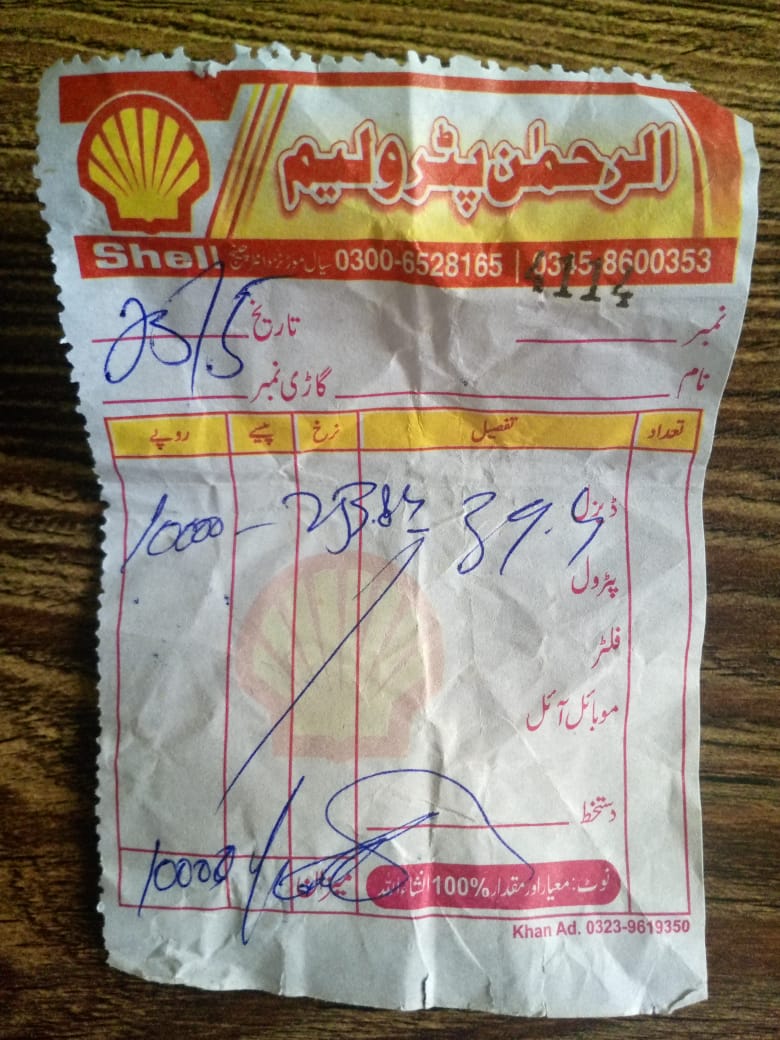 الرحمٰن پٹرولیم
Shell
0300-6528165 | 0345-8600353
4114
نمبر تاریخ 25/5
نام گاڑی نمبر
تعداد تفصیل نرخ پیسے روپے
ڈیزل 39.4 253.83 10000-
پٹرول
فلٹر
موبائل آئل
دستخط
نوٹ: معیار اور مقدار 100% انشاءاللہ میزان 10000/-
Khan Ad. 0323-9619350